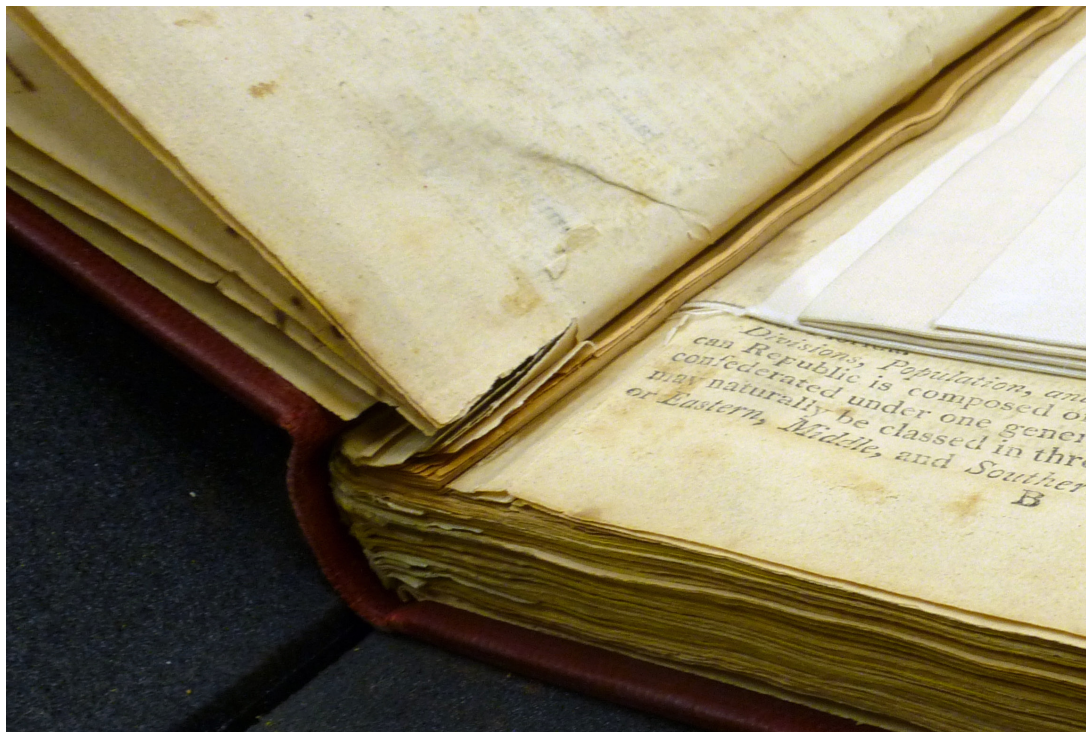 Divisions, Population, an
can Republic is composed o
confederated under one gener
may naturally be classed in thre
or Eastern, Middle, and Souther
B